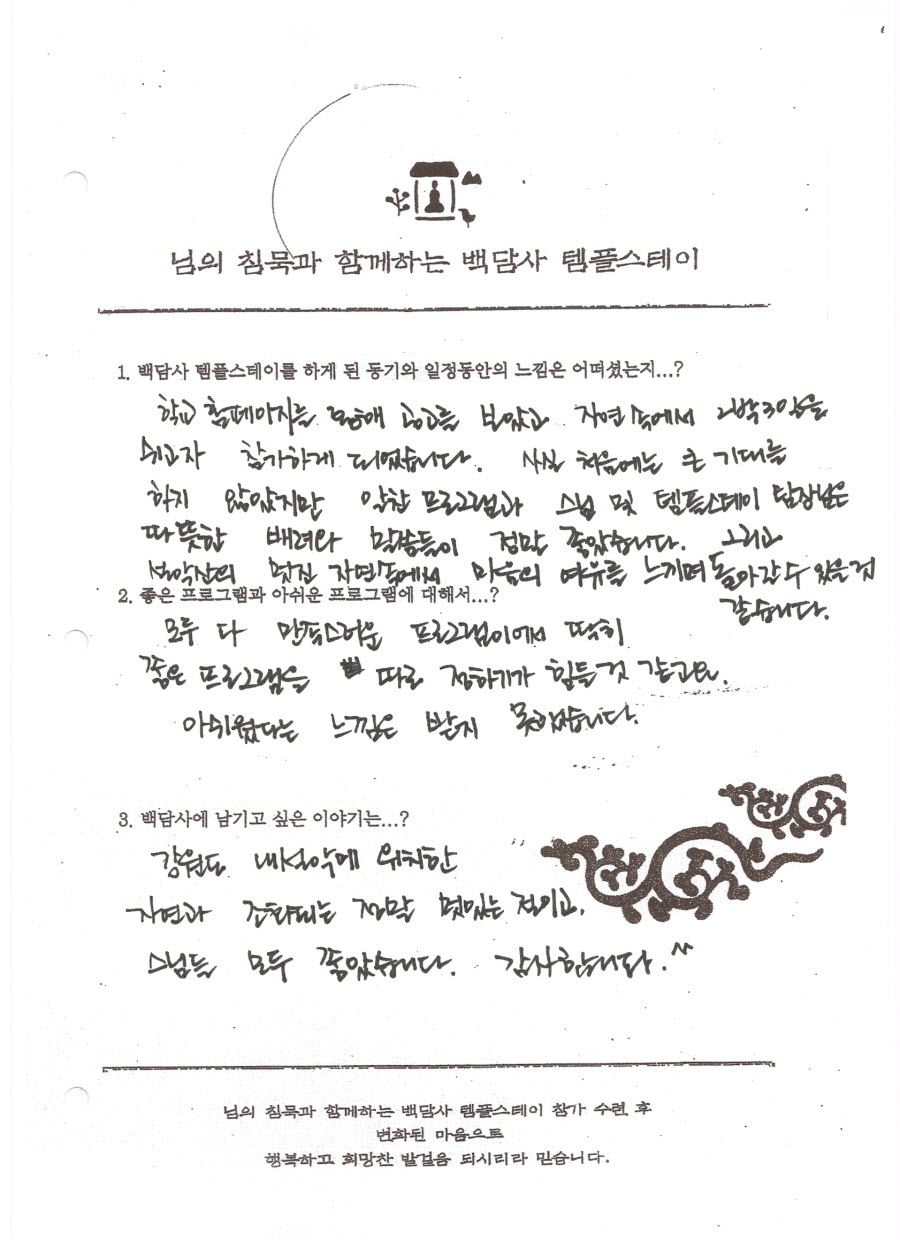 님의 침묵과 함께하는 백담사 템플스테이
1. 백담사 템플스테이를 하게 된 동기와 일정동안의 느낌은 어떠셨는지...?
학교 홈페이지를 통해 공고를 보았고 자연속에서 2박3일을
쉬고자 참가하게 되었습니다. 사실 처음에는 큰 기대를
하지 않았지만 알찬 프로그램과 스님 및 템플스테이 팀장님은
따뜻한 배려와 말씀들이 정말 좋았습니다. 그리고
설악산의 멋진 자연속에서 마음의 여유를 느끼며 돌아갈 수 있을 것
같습니다.
2. 좋은 프로그램과 아쉬운 프로그램에 대해서...?
모두 다 만족스러운 프로그램이어서 딱히
좋은 프로그램을 따로 정하기가 힘들 것 같고요.
아쉬웠다는 느낌은 받지 못했습니다.
3. 백담사에 남기고 싶은 이야기는...?
강원도 내설악에 위치한
자연과 조화되는 정말 멋있는 절이고,
스님들 모두 좋았습니다. 감사합니다. ^^
님의 침묵과 함께하는 백담사 템플스테이 참가 수련 후
변화된 마음으로
행복하고 희망찬 발걸음 되시리라 믿습니다.